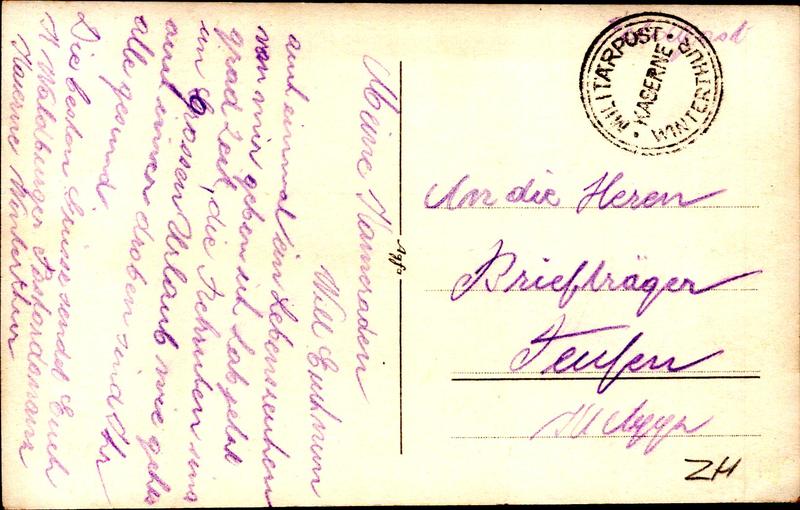 Meine Kameraden
Will Euch nun
auch einmal ein Lebenszeichen
von mir geben ich hab jetzt
grad Zeit, die Fichsten sind
im Grossen Urlaub wie gehts
auch immer droben sind Ihr
alle gesund
Die besten Grüsse sendet Euch
A Waldburger
Kaserne Winterthur
MILITÄRPOST
KASERNE
WINTERTHUR
An die Heren
Briefträger
Teufen
ZH